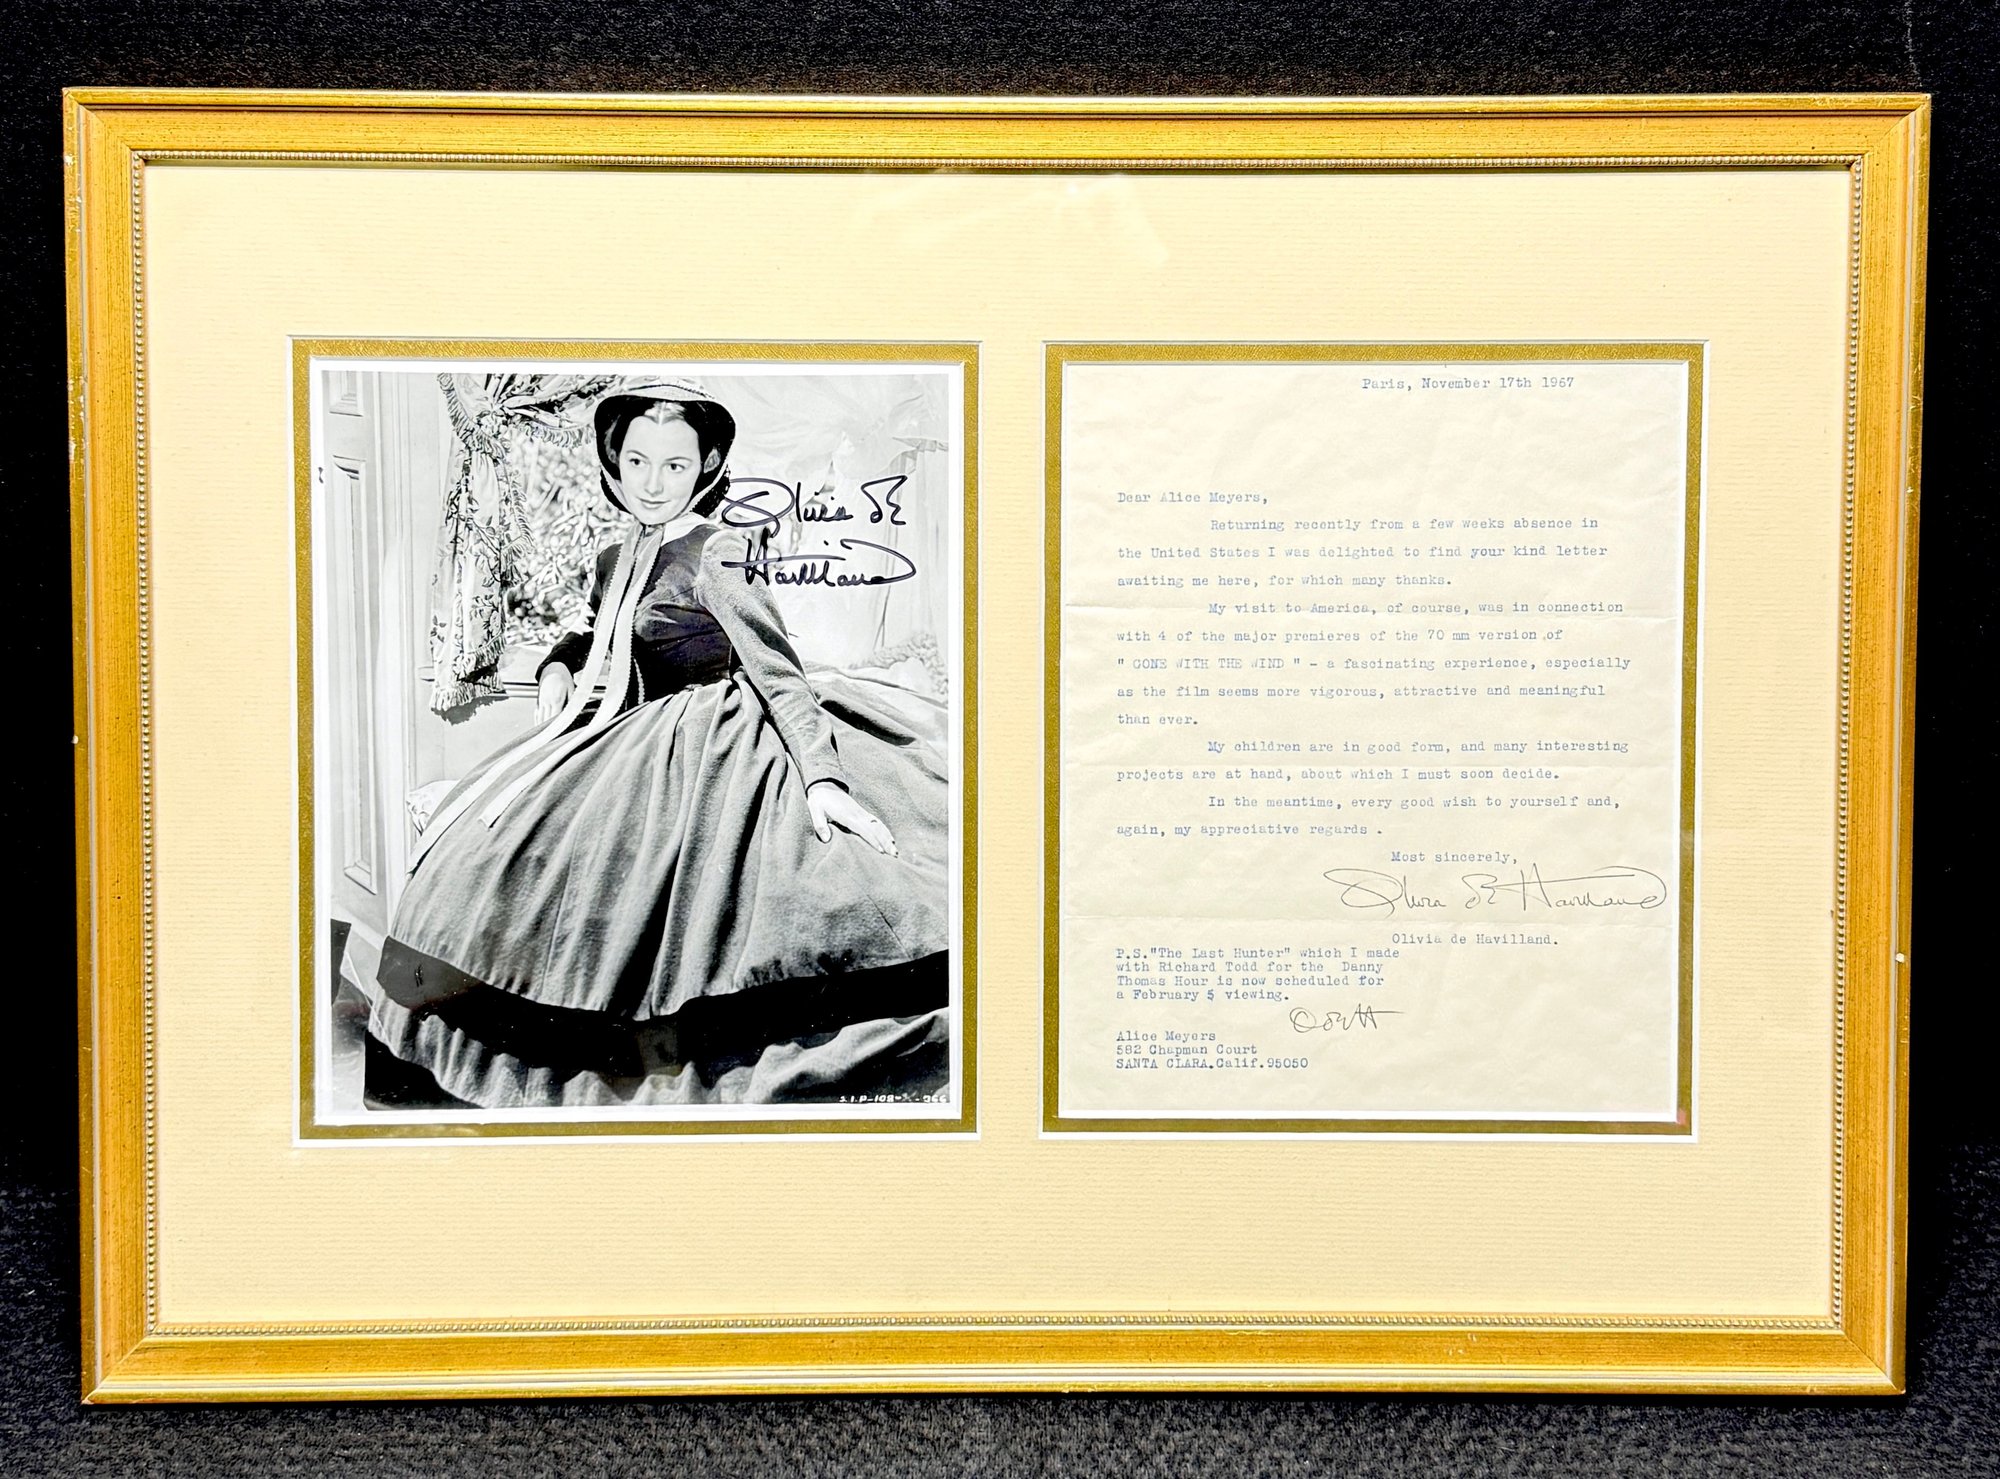 Olivia de
Havilland
S.I.P-108- -366
Paris, November 17th 1967
Dear Alice Meyers,
Returning recently from a few weeks absence in
the United States I was delighted to find your kind letter
awaiting me here, for which many thanks.
My visit to America, of course, was in connection
with 4 of the major premieres of the 70 mm version of
" GONE WITH THE WIND " - a fascinating experience, especially
as the film seems more vigorous, attractive and meaningful
than ever.
My children are in good form, and many interesting
projects are at hand, about which I must soon decide.
In the meantime, every good wish to yourself and,
again, my appreciative regards .
Most sincerely,
Olivia de Havilland
Olivia de Havilland.
P.S."The Last Hunter" which I made
with Richard Todd for the Danny
Thomas Hour is now scheduled for
a February 5 viewing.
OdeH
Alice Meyers
582 Chapman Court
SANTA CLARA.Calif.95050